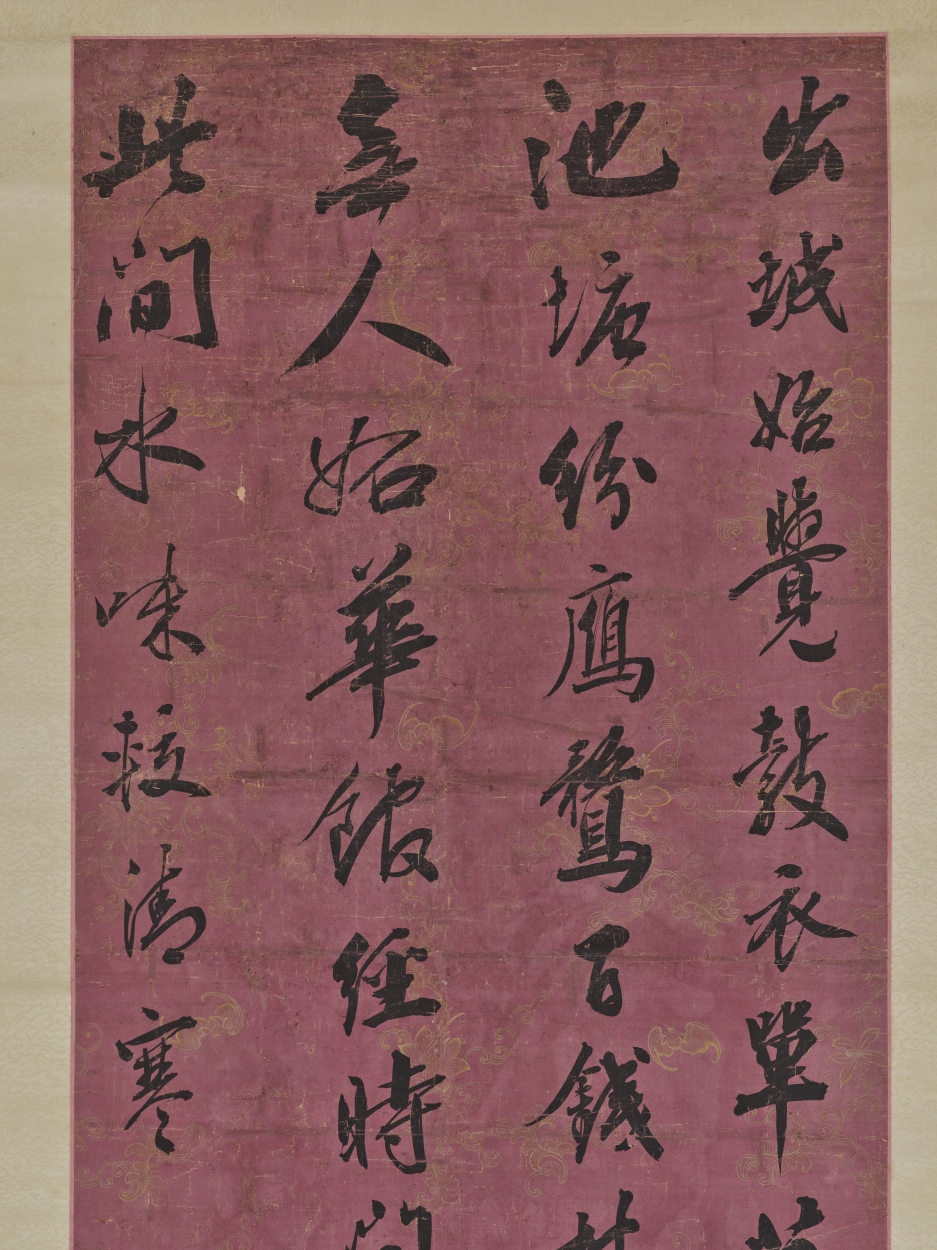 出城始覺縠衣單
池塘紛鴈鶩百錢
無人妬華館經時
此間水味較清寒